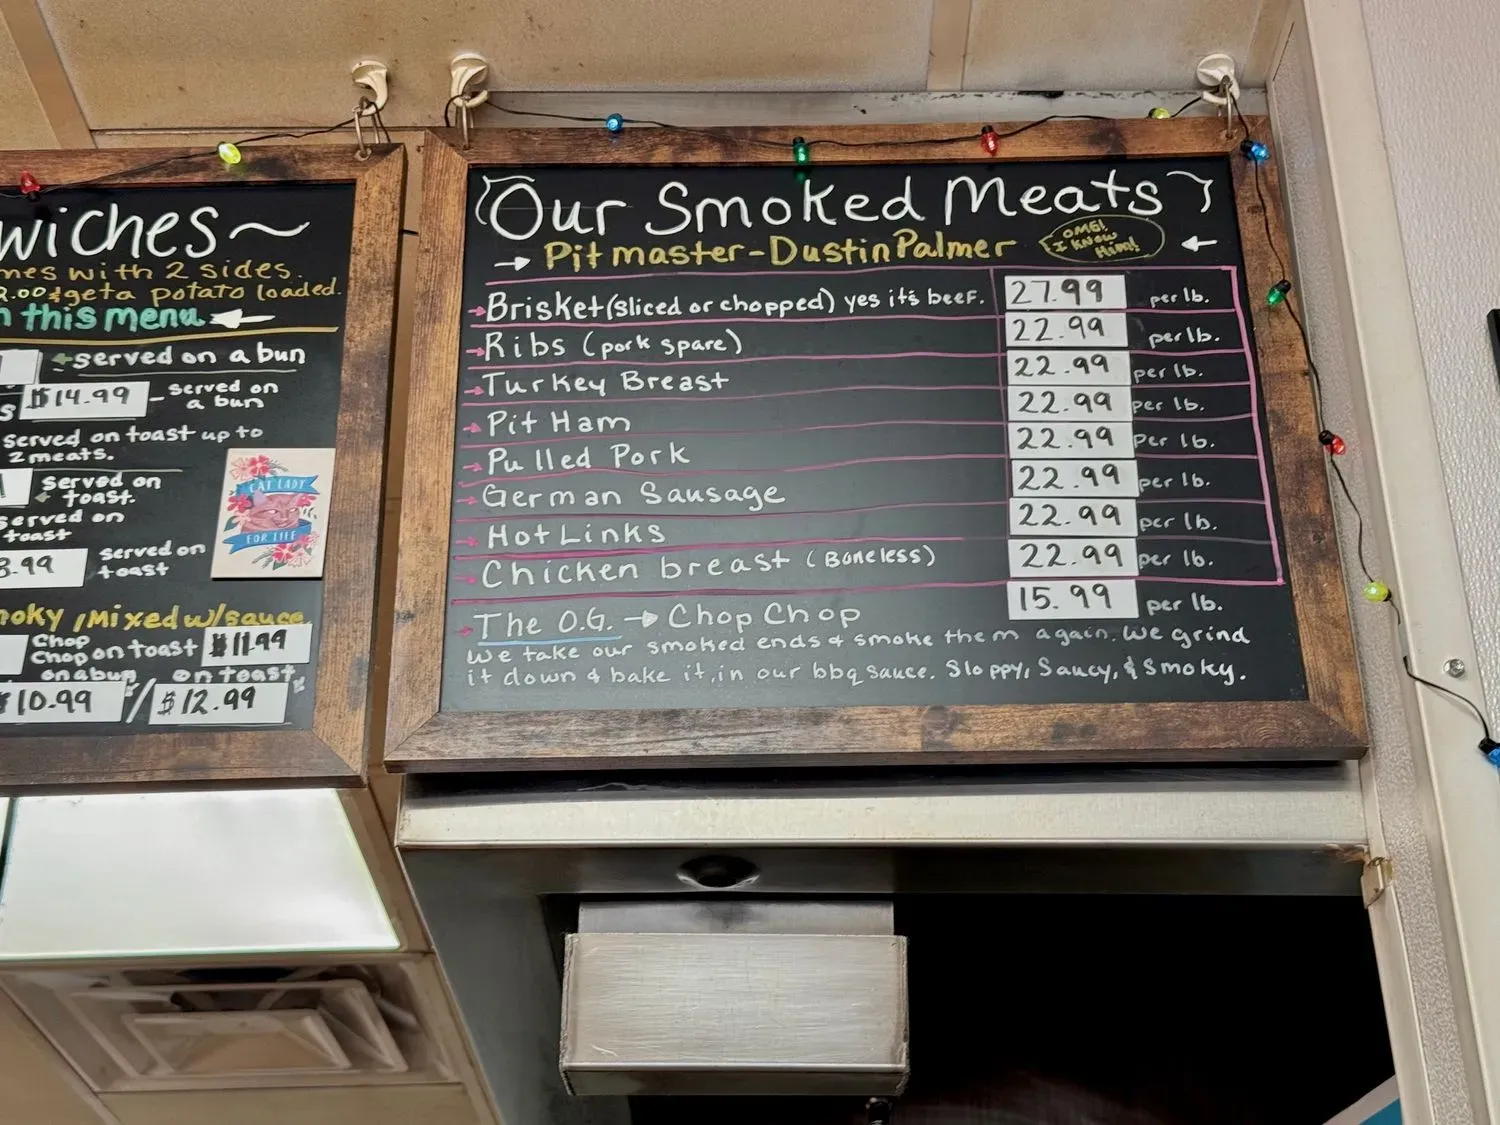 wiches~
mes with 2 sides.
2.00 & get a potato loaded.
n this menu
served on a bun
$14.99 - served on
a bun
served on toast up to
2 meats.
served on
toast.
served on
toast
3.99 served on
toast
CAT LADY
FOR LIFE
moky, Mixed w/sauce
Chop
Chop on toast $11.99
on a bun on toast
$10.99 / $12.99
Our Smoked Meats
Pit master - Dustin Palmer
OMG!
I KNOW
Him!
Brisket (sliced or chopped) yes it's beef. 27.99 per lb.
Ribs (pork spare) 22.99 per lb.
Turkey Breast 22.99 per lb.
Pit Ham 22.99 per lb.
Pulled Pork 22.99 per lb.
German Sausage 22.99 per lb.
Hot Links 22.99 per lb.
Chicken breast (Boneless) 22.99 per lb.
The O.G. → Chop Chop 15.99 per lb.
We take our smoked ends & smoke them again. We grind
it down & bake it, in our bbq sauce. Sloppy, Saucy, & Smoky.